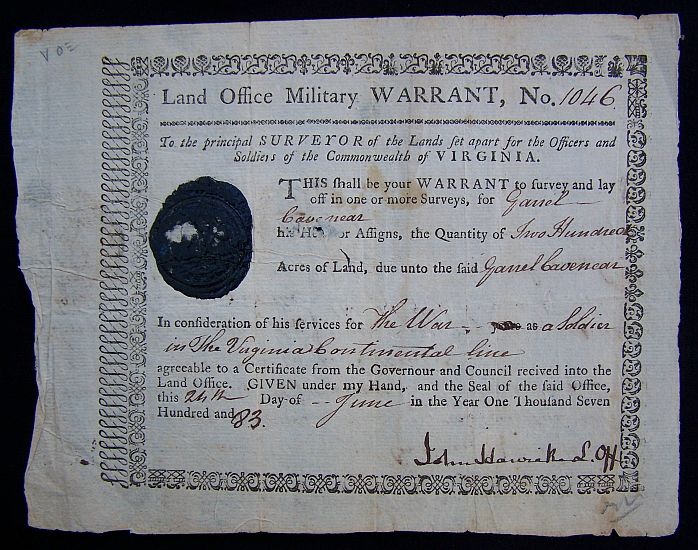 Land Office Military WARRANT, No. 1046
To the principal SURVEYOR of the Lands ſet apart for the Officers and
Soldiers of the Commonwealth of VIRGINIA.
THIS ſhall be your WARRANT to ſurvey and lay
off in one or more Surveys, for Garrel
Cavenear
his or Aſſigns, the Quantity of Two Hundred
Acres of Land, due unto the ſaid Garrel Cavenear
In conſideration of his ſervices for The War as a Soldier
in The Virginia Continental line
agreeable to a Certificate from the Governour and Council recived into the
Land Office. GIVEN under my Hand, and the Seal of the ſaid Office,
this 24th Day of June in the Year One Thouſand Seven
Hundred and 83.
John Off